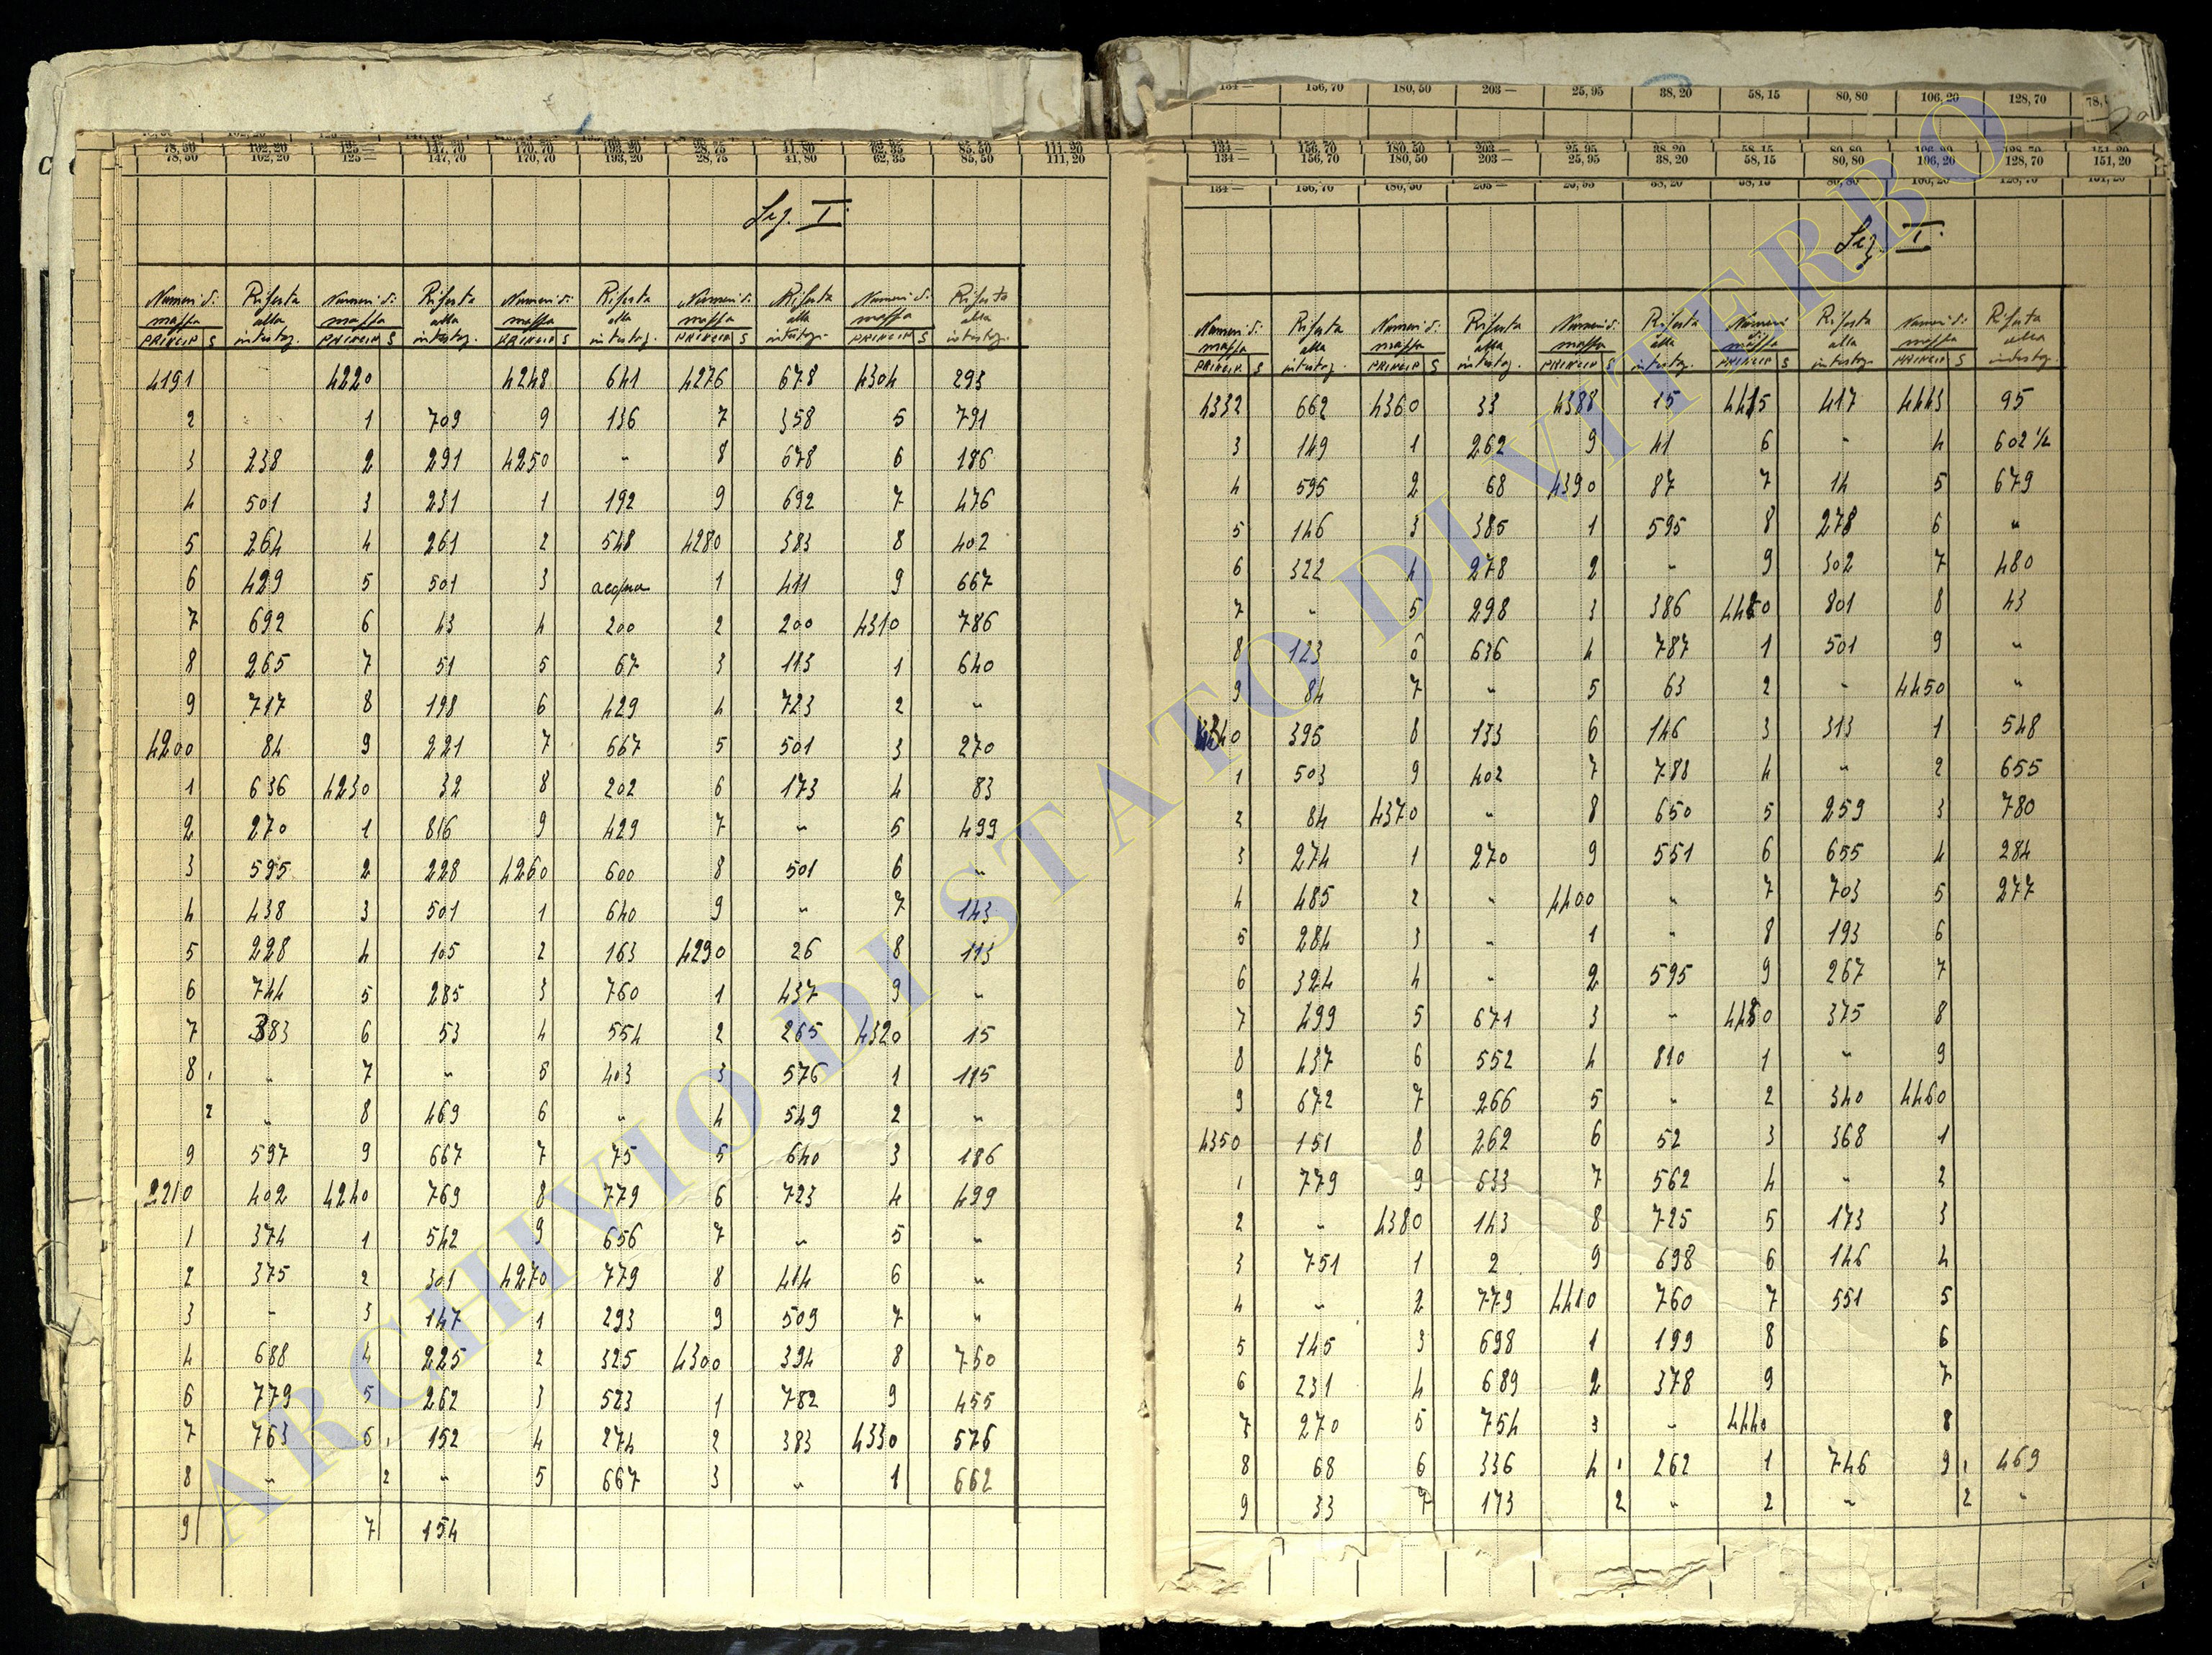 78,50 102,20 125— 147,70 170,70 193,20 28,75 41,80 62,35 85,50 111,20
Sez. I.
Numeri di mappa Riferta alla intestaz. Numeri di mappa Riferta alla intestaz. Numeri di mappa Riferta alla intestaz. Numeri di mappa Riferta alla intestaz. Numeri di mappa Riferta alla intestaz.
PRINCIP S PRINCIP S PRINCIP S PRINCIP S PRINCIP S
4191 4220 4248 641 4276 678 4304 293
2 1 709 9 136 7 358 5 791
3 238 2 291 4250 " 8 678 6 186
4 501 3 231 1 192 9 692 7 476
5 264 4 261 2 548 4280 383 8 402
6 429 5 501 3 acqua 1 411 9 667
7 692 6 43 4 200 2 200 4310 786
8 265 7 51 5 67 3 113 1 640
9 717 8 198 6 429 4 723 2 "
4200 84 9 221 7 667 5 501 3 270
1 636 4230 32 8 202 6 173 4 83
2 270 1 816 9 429 7 " 5 499
3 595 2 228 4260 600 8 501 6 "
4 438 3 501 1 640 9 " 7 143
5 228 4 105 2 163 4290 26 8 113
6 744 5 285 3 760 1 437 9 "
7 383 6 53 4 554 2 265 4320 15
8 1 " 7 " 5 403 3 576 1 185
2 " 8 469 6 " 4 549 2 "
9 597 9 667 7 75 5 640 3 186
2210 402 4240 769 8 779 6 723 4 499
1 374 1 542 9 656 7 " 5 "
2 375 2 301 4270 779 8 414 6 "
3 " 3 147 1 293 9 509 7 "
4 688 4 225 2 325 4300 394 8 760
6 779 5 262 3 523 1 782 9 455
7 763 6 1 152 4 274 2 383 4330 576
8 " 2 " 5 667 3 " 1 662
9 7 154
134— 156,70 180,50 203— 25,95 38,20 58,15 80,80 106,20 128,70 151,20
Sez. I.
Numeri di mappa Riferta alla intestaz. Numeri di mappa Riferta alla intestaz. Numeri di mappa Riferta alla intestaz. Numeri di mappa Riferta alla intestaz. Numeri di mappa Riferta alla intestaz.
PRINCIP. S PRINCIP S PRINCIP S PRINCIP S PRINCIP S
4332 662 4360 33 4388 15 4415 417 4443 95
3 149 1 262 9 41 6 " 4 602 1/2
4 595 2 68 4390 87 7 14 5 679
5 146 3 385 1 595 8 278 6 "
6 322 4 278 2 " 9 302 7 480
7 " 5 298 3 386 4420 801 8 43
8 123 6 636 4 787 1 501 9 "
9 84 7 " 5 63 2 " 4450 "
4340 395 8 133 6 146 3 313 1 548
1 503 9 402 7 788 4 " 2 655
2 84 4370 " 8 650 5 259 3 780
3 274 1 270 9 551 6 655 4 284
4 485 2 " 4400 " 7 703 5 277
5 284 3 " 1 " 8 193 6
6 324 4 " 2 595 9 267 7
7 499 5 671 3 " 4430 375 8
8 437 6 552 4 810 1 " 9
9 672 7 266 5 " 2 340 4460
4350 151 8 262 6 52 3 368 1
1 779 9 633 7 562 4 " 2
2 " 4380 143 8 725 5 173 3
3 751 1 2 9 698 6 146 4
4 " 2 779 4410 760 7 551 5
5 145 3 698 1 199 8 6
6 231 4 689 2 378 9 7
7 270 5 754 3 " 4440 8
8 68 6 336 4 1 262 1 746 9 1 469
9 33 7 173 2 " 2 " 2 "
ARCHIVIO DI STATO DI VITERBO